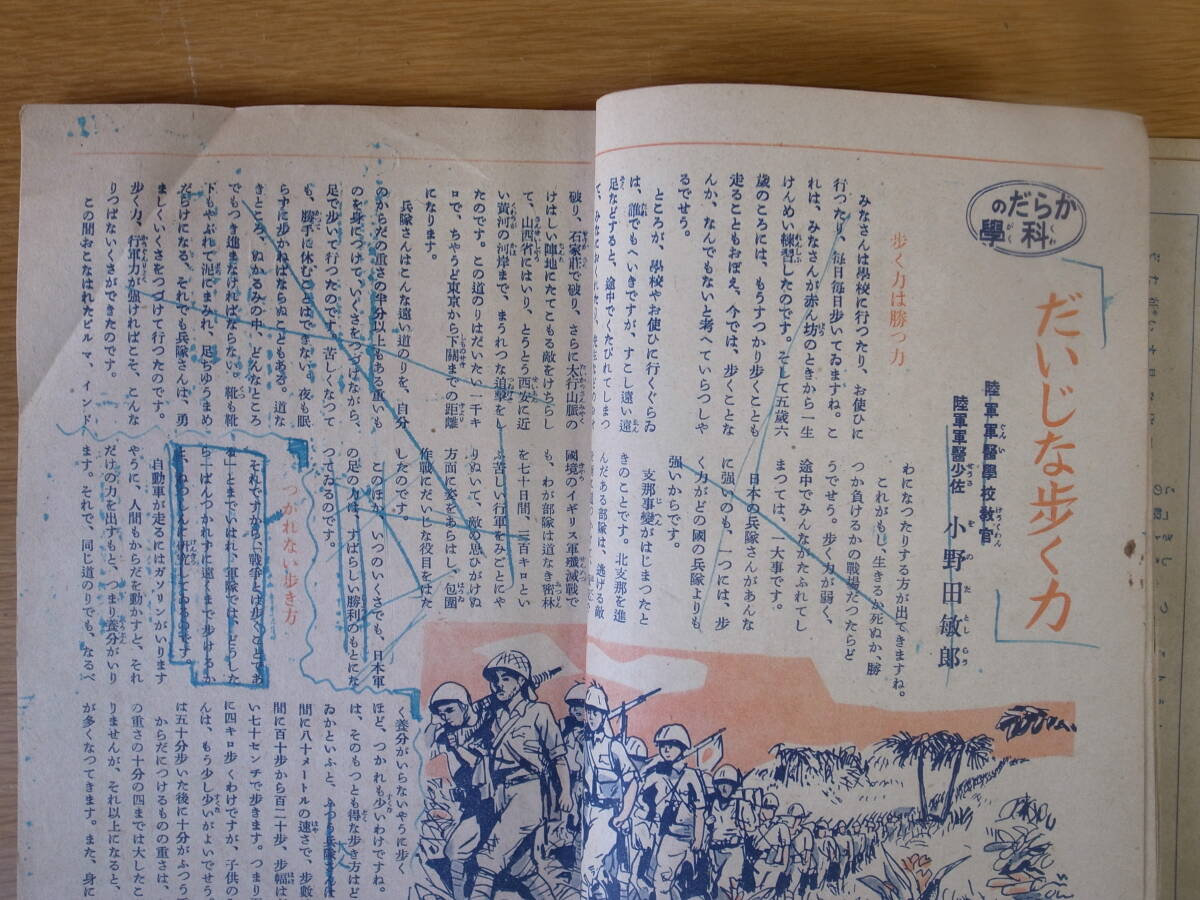 からだの
科學
だいじな歩く力
陸軍軍醫學校教官
陸軍軍醫少佐 小野田敏郎
歩く力は勝つ力
みなさんは學校に行つたり、お使ひに
行つたり、毎日毎日歩いてゐますね。こ
れは、みなさんが赤ん坊のときから一生
けんめい練習したのです。そして五歳六
歳のころには、もうすつかり歩くことも
走ることもおぼえ、今では、歩くことな
んか、なんでもないと考へていらつしや
るでせう。
ところが、學校やお使ひに行くぐらゐ
は、誰でもへいきですが、すこし遠い遠
足などすると、途中でくたびれてしまつ
わになつたりする方が出てきますね。
これがもし、生きるか死ぬか、勝
つか負けるかの戰場だつたらど
うでせう。歩く力が弱く、
途中でみんなかたふれてし
まつては、一大事です。
日本の兵隊さんがあんな
に強いのも、一つには、歩
く力がどの國の兵隊よりも
強いからです。
支那事變がはじまつたと
きのことです。北支那を進
んだある部隊は、逃げる敵
破り、石家莊で破り、さらに太行山脈の
けはしい陣地にたてこもる敵をけちらし
て、山西省にはいり、とうとう西安に近
い黄河の河岸まで、まうれつな追撃をし
たのです。この道のりはだいたい一千キ
ロで、ちやうど東京から下關までの距離
になります。
兵隊さんはこんな遠い道のりを、自分
のからだの重さの半分以上もある重いも
のを身につけて、いくさをつづけながら、
足で歩いて行つたのです。苦しくなつて
も、勝手に休むことはできない。夜も眠
らずに歩かねばならぬこともある。道な
きところ、ぬかるみの中、どんなところ
でもつき進まなければならない。靴も靴
下もやぶれて泥にまみれ、足ぢゆうまめ
だらけになる。それでも兵隊さんは、勇
ましくいくさをつづけて行つたのです。
歩く力、行軍力が強ければこそ、こんな
りつぱないくさができたのです。
この間おこなはれたビルマ、インド
國境のイギリス軍殲滅戰で
も、わが部隊は道なき密林
を七十日間、三百キロとい
ふ苦しい行軍をみごとにや
りぬいて、敵の思ひがけぬ
方面に姿をあらはし、包圍
作戰にだいじな役目をはた
したのです。
このほか、いつのいくさでも、日本軍
の足の力は、すばらしい勝利のもとにな
つてゐるのです。
つかれない歩き方
それですから、「戰爭とは歩くことであ
る」とまでいはれ、軍隊では、どうした
ら一ばんつかれずに遠くまで歩けるか
を、ねつしんに研究してゐるのです。
自動車が走るにはガソリンがいります
やうに、人間もからだを動かすと、それ
だけの力を出すもと、つまり養分がいり
ます。それで、同じ道のりでも、なるべ
く養分がいらないやうに歩く
ほど、つかれも少いわけですね。
は、そのもつとも得な歩き方はど
ゐかといふと、ふつう兵隊さんは
間に八十メートルの速さで、歩數
間に百十歩から百二十歩、歩幅は
い七十センチで歩きます。つまり
に四キロ歩くわけですが、子供の
んは、もう少し少いがよいでせう
は五十分歩いた後に十分がふつう
からだにつけるものの重さは、
の重さの十分の四までは大したこ
りませんが、それ以上になると、
が多くなつてきます。また、身に